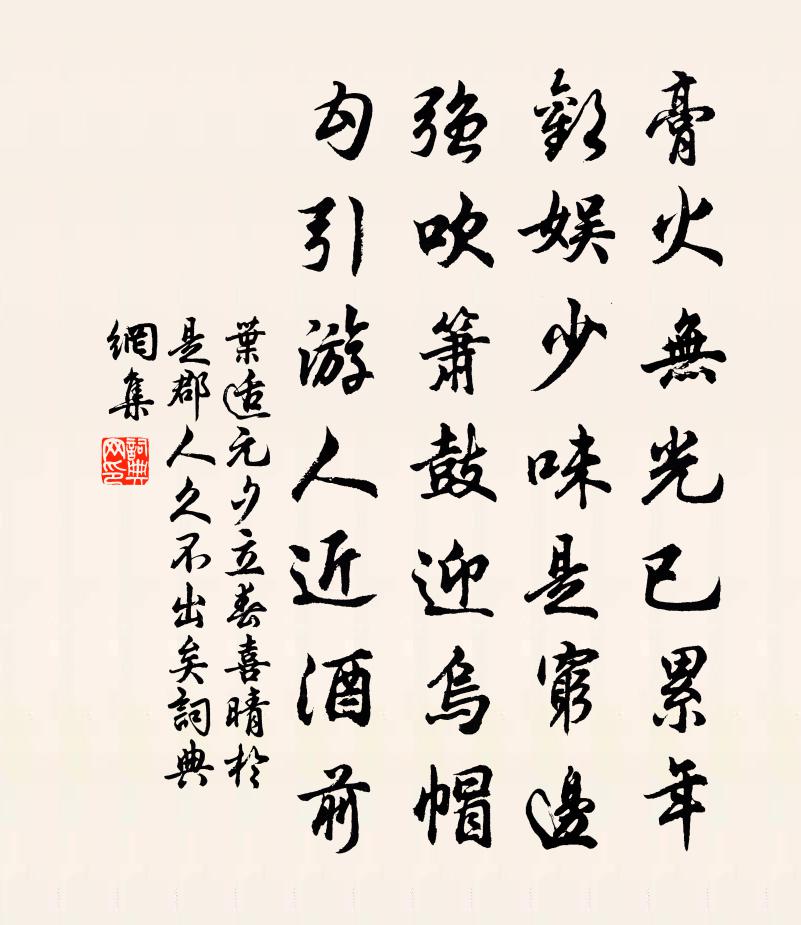 膏火無光已累年
歡娱少味是窮邊
强吹簫鼓迎烏帽
勾引游人近酒前
葉適元夕立春喜晴於
是郡人久不出矣詞典
網集
詞典
网印